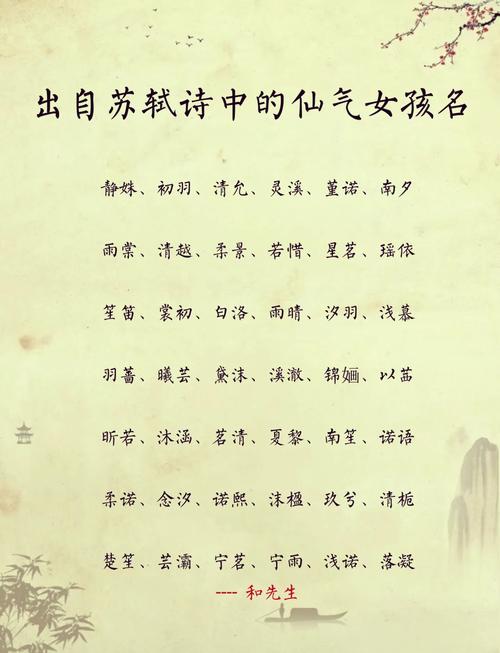 出自苏轼诗中的仙气女孩名
静姝、初羽、清允、灵溪、堇诺、南夕
雨棠、清越、柔景、若惜、星茗、瑶依
笙笛、裳初、白洛、雨晴、汐羽、浅慕
羽蔷、曦芸、黛沫、溪澈、锦婳、以茜
昕若、沐涵、茗清、夏黎、南笙、诺语
柔诺、念汐、诺熙、沫楹、玖兮、清栀
楚笙、芸灞、宁茗、宁雨、浅诺、落凝
---- 和先生